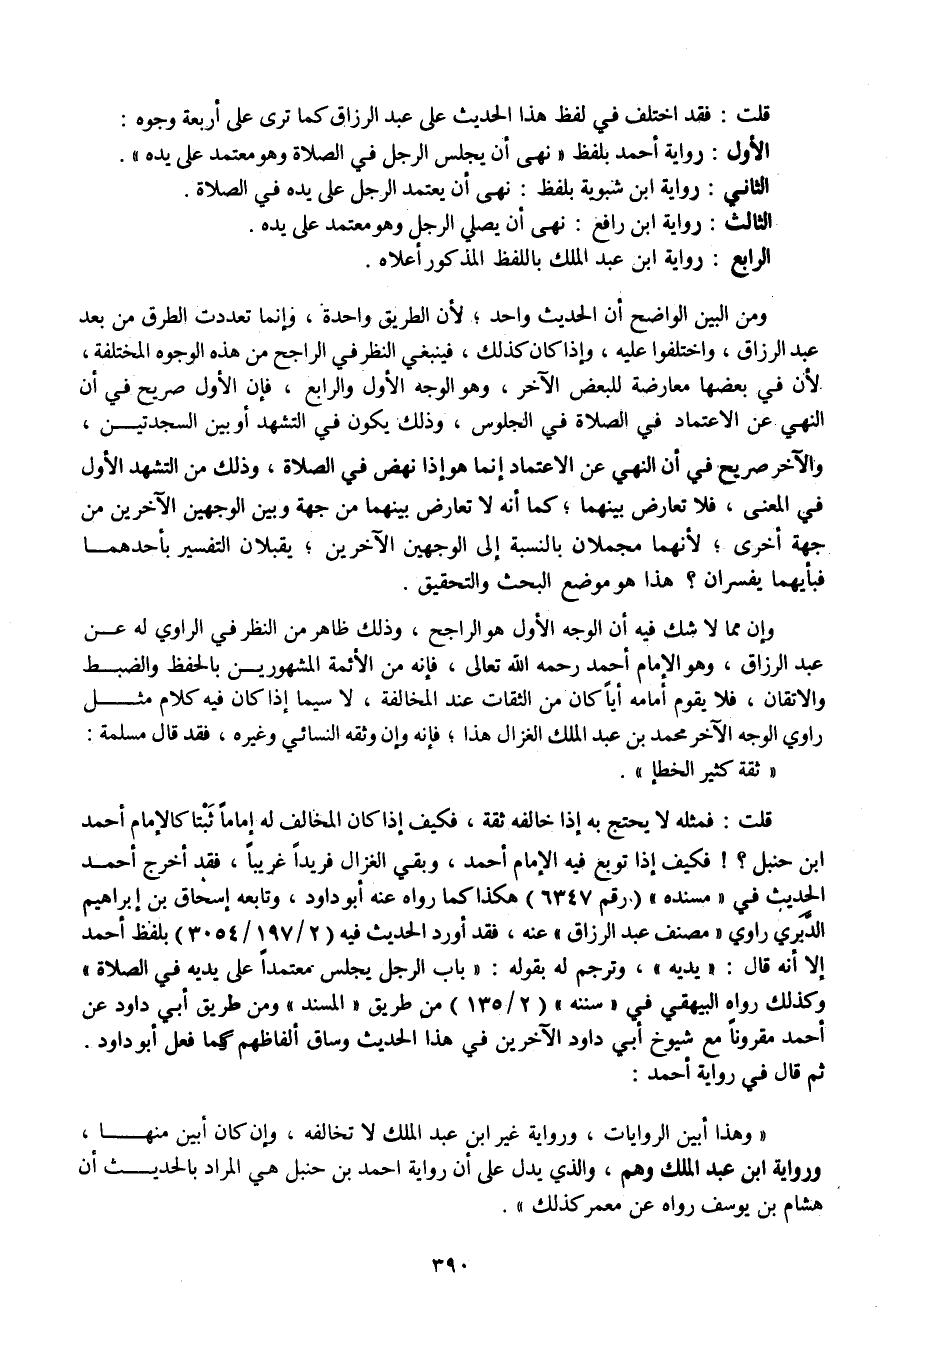 قلت : فقد اختلف في لفظ هذا الحديث على عبد الرزاق كما ترى على أربعة وجوه :
الأول : رواية أحمد بلفظ « نهى أن يجلس الرجل في الصلاة وهو معتمد على يده » .
الثاني : رواية ابن شبوية بلفظ : نهى أن يعتمد الرجل على يده في الصلاة .
الثالث : رواية ابن رافع : نهى أن يصلي الرجل وهو معتمد على يده .
الرابع : رواية ابن عبد الملك باللفظ المذكور أعلاه .
ومن البين الواضح أن الحديث واحد ؛ لأن الطريق واحدة ، وإنما تعددت الطرق من بعد
عبد الرزاق ، واختلفوا عليه ، وإذا كان كذلك ، فينبغي النظر في الراجح من هذه الوجوه المختلفة ،
لأن في بعضها معارضة للبعض الآخر ، وهو الوجه الأول والرابع ، فإن الأول صريح في أن
النهي عن الاعتماد في الصلاة في الجلوس ، وذلك يكون في التشهد أو بين السجدتين ،
والآخر صريح في أن النهي عن الاعتماد إنما هو إذا نهض في الصلاة ، وذلك من التشهد الأول
في المعنى ، فلا تعارض بينهما ؛ كما أنه لا تعارض بينهما من جهة وبين الوجهين الآخرين من
جهة أخرى ؛ لأنهما مجملان بالنسبة إلى الوجهين الآخرين ؛ يقبلان التفسير بأحدهما
فبأيهما يفسران ؟ هذا هو موضع البحث والتحقيق .
وإن مما لا شك فيه أن الوجه الأول هو الراجح ، وذلك ظاهر من النظر في الراوي له عن
عبد الرزاق ، وهو الإمام أحمد رحمه الله تعالى ، فإنه من الأئمة المشهورين بالحفظ والضبط
والاتقان ، فلا يقوم أمامه أياً كان من الثقات عند المخالفة ، لا سيما إذا كان فيه كلام مثل
راوي الوجه الآخر محمد بن عبد الملك الغزال هذا ؛ فإنه وإن وثقه النسائي وغيره ، فقد قال مسلمة :
« ثقة كثير الخطإ » .
قلت : فمثله لا يحتج به إذا خالفه ثقة ، فكيف إذا كان المخالف له إماماً ثَبْتا كالإمام أحمد
ابن حنبل ؟ ! فكيف إذا توبع فيه الإمام أحمد ، وبقي الغزال فريداً غريباً ، فقد أخرج أحمد
الحديث في « مسنده » ( رقم ٦٣٤٧ ) هكذا كما رواه عنه أبو داود ، وتابعه إسحاق بن إبراهيم
الدَّبَري راوي « مصنف عبد الرزاق » عنه ، فقد أورد الحديث فيه ( ٢/١٩٧/٣٠٥٤ ) بلفظ أحمد
إلا أنه قال : « يديه » ، وترجم له بقوله : « باب الرجل يجلس معتمداً على يديه في الصلاة »
وكذلك رواه البيهقي في « سننه » ( ٢/١٣٥ ) من طريق « المسند » ومن طريق أبي داود عن
أحمد مقروناً مع شيوخ أبي داود الآخرين في هذا الحديث وساق ألفاظهم كما فعل أبو داود .
ثم قال في رواية أحمد :
« وهذا أبين الروايات ، ورواية غير ابن عبد الملك لا تخالفه ، وإن كان أبين منها ،
ورواية ابن عبد الملك وهم ، والذي يدل على أن رواية احمد بن حنبل هي المراد بالحديث أن
هشام بن يوسف رواه عن معمر كذلك » .
٣٩٠